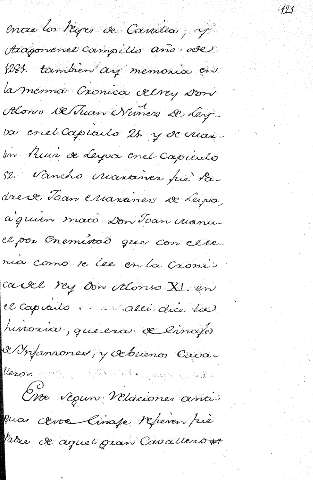 121
entre los Reyes de Castilla, y
Aragon en el Campillo año de
1281. tambien ay memoria en
la mesma Cronica del rey Don
Alonso de Juan Nuñes de Ley-
va en el Capitulo 21. y de Mar-
tin Ruiz de Leyva en el Capitulo
52. Sancho Martines fué Pa-
dre de Joan Martines de Leyva
á quien mató Don Joan Manu-
el por enemistad que con el te-
nia como se lee en la Croni-
ca del rey Don Alonso XI. en
el capitulo . . . . . alli dice la
historia, que era de linaje
de Infanzones, y de buenos Cava-
lleros.
Este segun relaciones anti-
guas deste linaje refieren fue
Padre de aquel gran Cavallero